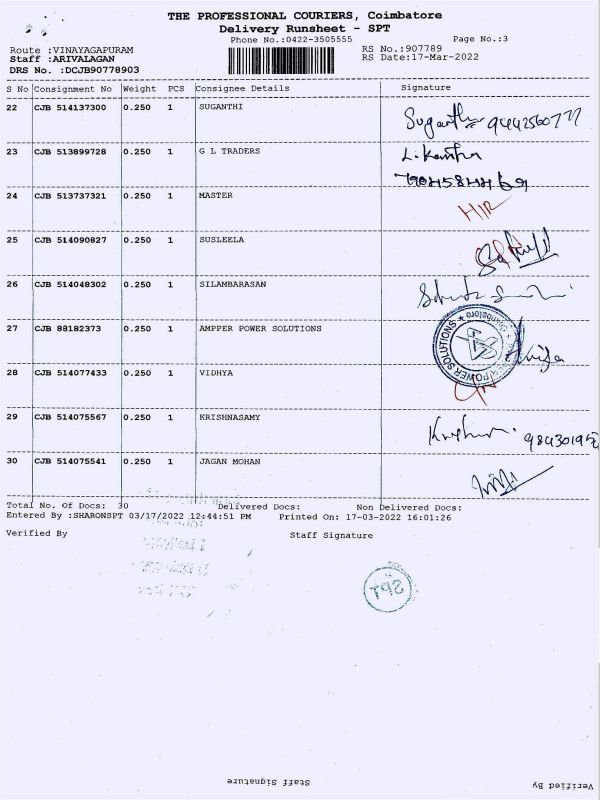 THE PROFESSIONAL COURIERS, Coimbatore
Delivery Runsheet - SPT
Phone No.:0422-3505555
Page No.:3
Route :VINAYAGAPURAM
RS No.:907789
Staff :ARIVALAGAN
RS Date:17-Mar-2022
DRS No. :DCJB90778903
S No Consignment No Weight PCS Consignee Details Signature
22 CJB 514137300 0.250 1 SUGANTHI
23 CJB 513899728 0.250 1 G L TRADERS
24 CJB 513737321 0.250 1 MASTER
25 CJB 514090827 0.250 1 SUSLEELA
26 CJB 514048302 0.250 1 SILAMBARASAN
27 CJB 88182373 0.250 1 AMPPER POWER SOLUTIONS
POWER SOLUTIONS * Coimbatore
28 CJB 514077433 0.250 1 VIDHYA
29 CJB 514075567 0.250 1 KRISHNASAMY
30 CJB 514075541 0.250 1 JAGAN MOHAN
Total No. Of Docs: 30 Delivered Docs: Non Delivered Docs:
Entered By :SHARONSPT 03/17/2022 12:44:51 PM Printed On: 17-03-2022 16:01:26
Verified By Staff Signature
SPT
Staff Signature
Verified By